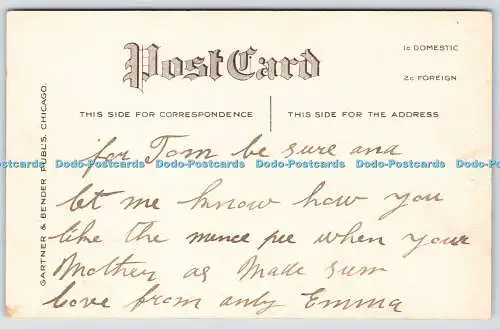 Post Card
1c DOMESTIC
2c FOREIGN
THIS SIDE FOR CORRESPONDENCE
THIS SIDE FOR THE ADDRESS
GARTNER & BENDER PUBL'S. CHICAGO.
for Tom be sure and
Dodo-Postcards Dodo-Postcards Dodo-Postcards Dodo-Postcards Dodo-Postcards
let me know how you
like the mince pee when your
Mother as Make sum
love from anly Emma